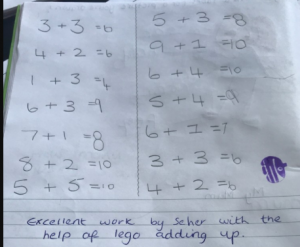 3 + 3 = 6
4 + 2 = 6
1 + 3 = 4
6 + 3 = 9
7 + 1 = 8
8 + 2 = 10
5 + 5 = 10
5 + 3 = 8
9 + 1 = 10
6 + 4 = 10
5 + 4 = 9
6 + 1 = 7
3 + 3 = 6
4 + 2 = 6
Excellent work by Seher with the
help of lego adding up.